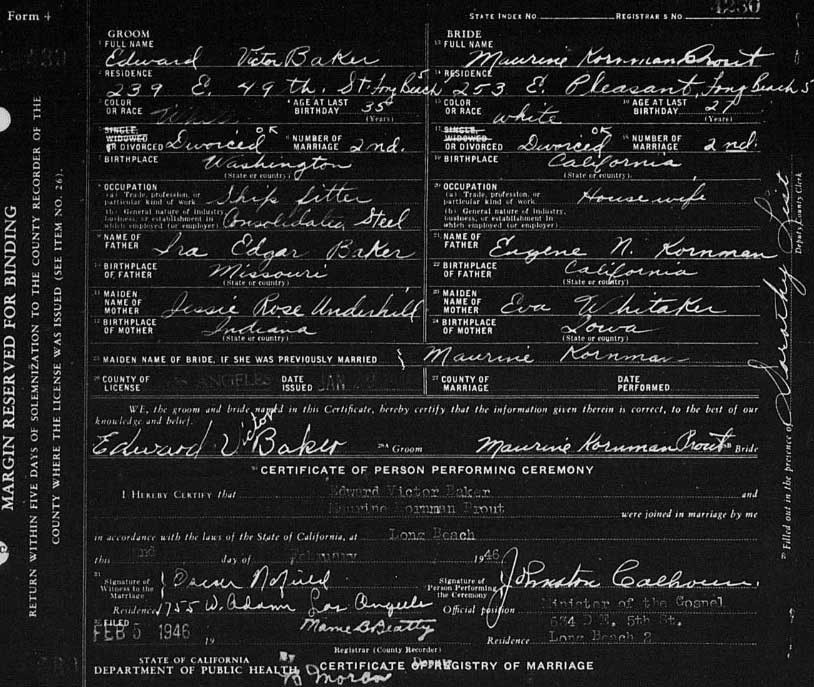 Form 4
STATE INDEX No. REGISTRAR'S No. 4230
GROOM
1 FULL NAME Edward Victor Baker
2 RESIDENCE 239 E. 49th. St Long Beach 5
3 COLOR OR RACE White 4 AGE AT LAST BIRTHDAY 35 (Years)
5 SINGLE, WIDOWED OR DIVORCED Divorced OK 6 NUMBER OF MARRIAGE 2nd.
7 BIRTHPLACE Washington
(State or country)
8 OCCUPATION
(a) Trade, profession, or particular kind of work Ship fitter
(b) General nature of industry, business, or establishment in which employed (or employer) Consolidated Steel
9 NAME OF FATHER Ira Edgar Baker
10 BIRTHPLACE OF FATHER Missouri
(State or country)
11 MAIDEN NAME OF MOTHER Jessie Rose Underhill
12 BIRTHPLACE OF MOTHER Indiana
(State or country)
BRIDE
13 FULL NAME Maurine Kornman Prout
14 RESIDENCE 253 E. Pleasant, Long Beach 5
15 COLOR OR RACE white 16 AGE AT LAST BIRTHDAY 27 (Years)
17 SINGLE, WIDOWED OR DIVORCED Divorced OK 18 NUMBER OF MARRIAGE 2nd.
19 BIRTHPLACE California
(State or country)
20 OCCUPATION
(a) Trade, profession, or particular kind of work House wife
(b) General nature of industry, business, or establishment in which employed (or employer)
21 NAME OF FATHER Eugene N. Kornman
22 BIRTHPLACE OF FATHER California
(State or country)
23 MAIDEN NAME OF MOTHER Eva Whitaker
24 BIRTHPLACE OF MOTHER Iowa
(State or country)
25 MAIDEN NAME OF BRIDE, IF SHE WAS PREVIOUSLY MARRIED Maurine Kornman
26 COUNTY OF LICENSE LOS ANGELES DATE ISSUED JAN
27 COUNTY OF MARRIAGE DATE PERFORMED
WE, the groom and bride named in this Certificate, hereby certify that the information given therein is correct, to the best of our
knowledge and belief.
Edward Victor Baker 28A Groom Maurine Kornman Prout Bride
CERTIFICATE OF PERSON PERFORMING CEREMONY
I HEREBY CERTIFY that Edward Victor Baker and
Maurine Kornman Prout were joined in marriage by me
in accordance with the laws of the State of California, at Long Beach
this 2nd day of February 1946
Signature of Witness to the Marriage
Residence 1755 W. Adams Los Angeles
Signature of Person Performing the Ceremony Johnston Calhoun.
Official position Minister of the Gospel
634 E. 5th St.
Residence Long Beach 2
FILED
FEB 5 1946 19
Mame B Beatty
Registrar (County Recorder)
By Deputy
STATE OF CALIFORNIA
DEPARTMENT OF PUBLIC HEALTH
CERTIFICATE OF REGISTRY OF MARRIAGE
MARGIN RESERVED FOR BINDING
RETURN WITHIN FIVE DAYS OF SOLEMNIZATION TO THE COUNTY RECORDER OF THE
COUNTY WHERE THE LICENSE WAS ISSUED (SEE ITEM NO. 26).
Filled out in the presence of Dorothy List
Deputy County Clerk